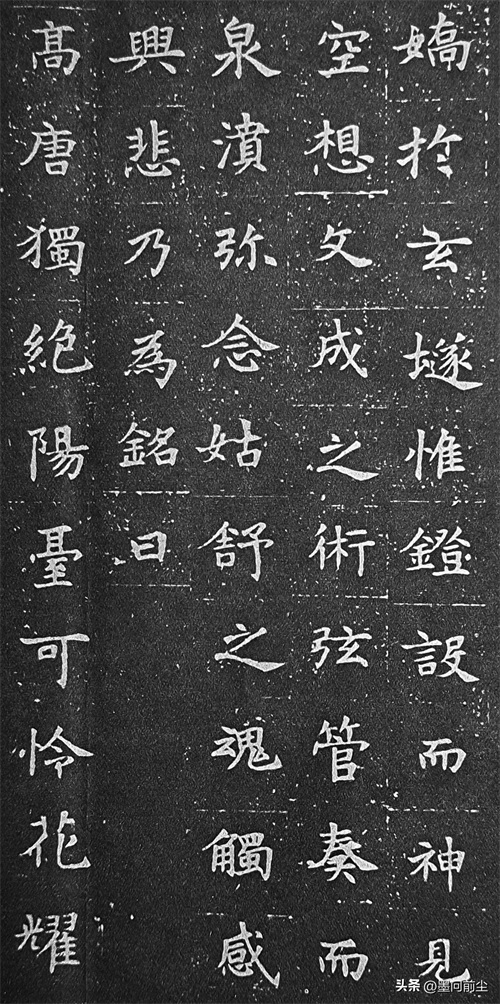 嬌扵玄𡑞惟鐙設而神見
空想文成之術弦管奏而
泉濆弥念姑舒之魂觸感
興悲乃為銘曰
髙唐獨絶陽臺可怜花耀
头条 @墨问前尘